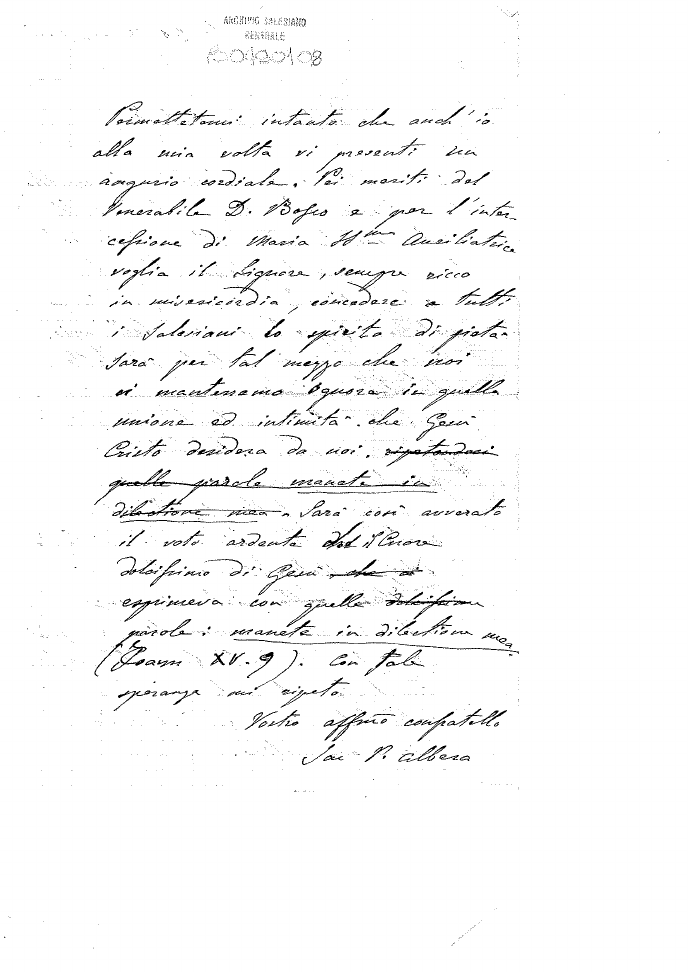 ARCHIVIO SALESIANO
CENTRALE
Permettetemi intanto che anch'io
alla mia volta vi presenti un
augurio cordiale. Pei meriti del
Venerabile D. Bosco e per l'inter-
cessione di Maria SSma Ausiliatrice
voglia il Signore, sempre ricco
in misericordia, concedere a tutti
i Salesiani lo spirito di pietà
Sarà per tal mezzo che noi
ci manterremo ognora in quella
unione ed intimità che Gesù
Cristo desidera da noi. ripetendoci
quelle parole manete in
dilectione mea. Sarà così avverato
il voto ardente del il Cuore
dolcissimo di Gesù che ci
esprimeva con quelle dolcissime
parole: manete in dilectione mea.
(Joann XV. 9). Con tale
speranza mi ripeto
Vostro affmo confratello
Sac P. Albera